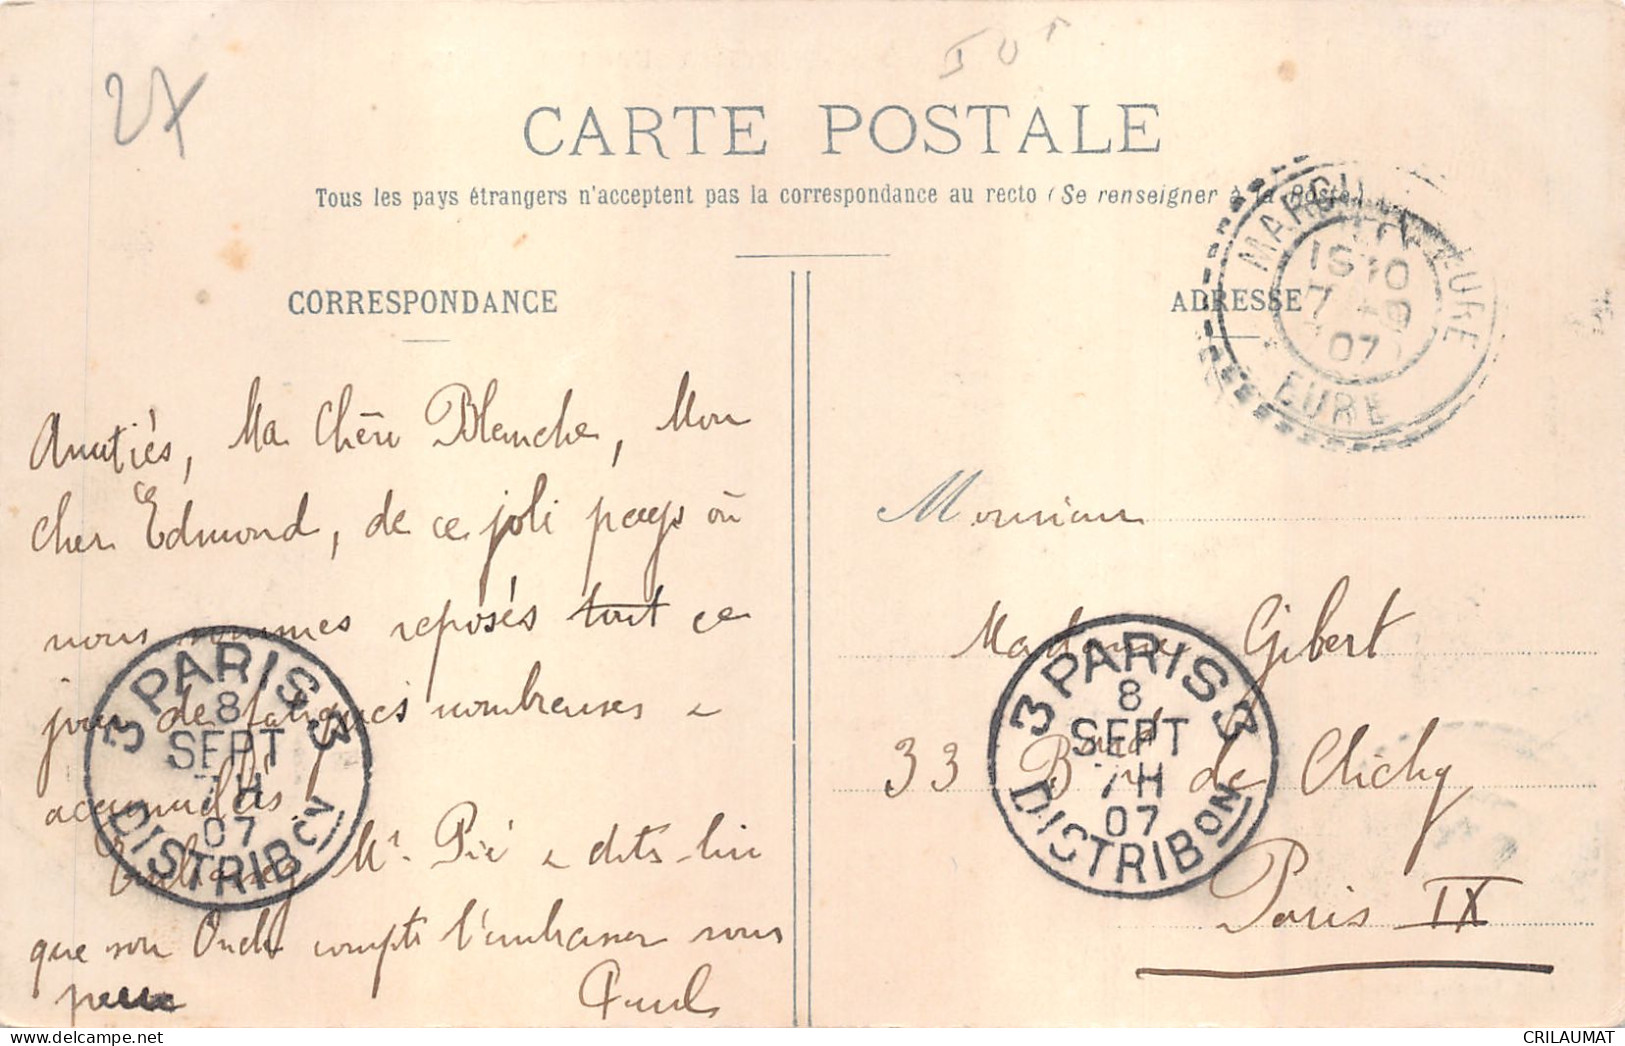 27
CARTE POSTALE
Tous les pays étrangers n'acceptent pas la correspondance au recto (Se renseigner à la Poste)
CORRESPONDANCE
ADRESSE
EURE
07
EURE
Amitiés, Ma Chère Blanche, Mon
cher Edmond, de ce joli pays où
nous sommes reposés tout ce
jour de fatigues nombreuses &
accumulées.
Embrassez Mr. Pié & dites-lui
que son Oncle compte l'embrasser sous
peu
Paul
Monsieur
Madame Gibert
33 Boulд de Clichy
Paris IX
3 PARIS 3
8
SEPT
7H
07
DISTRIBON
3 PARIS 3
8
SEPT
7H
07
DISTRIBON
CRILAUMAT